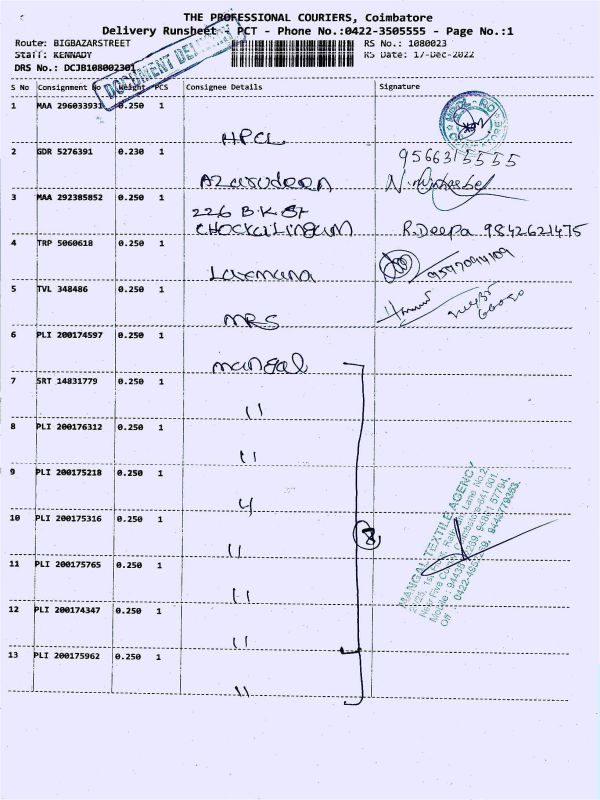 THE PROFESSIONAL COURIERS, Coimbatore
Delivery Runsheet - PCT - Phone No.:0422-3505555 - Page No.:1
Route: BIGBAZARSTREET RS No.: 1080023
Staff: KENNADY RS Date: 17-Dec-2022
DRS No.: DCJB108002301
DOCUMENT DELIVERY
S No Consignment No Weight PCS Consignee Details Signature
1 MAA 296033931 0.250 1 HPCL
2 GDR 5276391 0.230 1 9566315555
Azarudeen
3 MAA 292385852 0.250 1 226 B.K St
Chockalingam R.Deepa 9842621475
4 TRP 5060618 0.250 1
Laxmana 9597094109
5 TVL 348486 0.250 1
MRS
6 PLI 200174597 0.250 1
mangal
7 SRT 14831779 0.250 1
11
8 PLI 200176312 0.250 1
11
9 PLI 200175218 0.250 1
4
10 PLI 200175316 0.250 1
11 8
11 PLI 200175765 0.250 1
11
12 PLI 200174347 0.250 1
11
13 PLI 200175962 0.250 1
11
MANGAL TEXTILE AGENCY